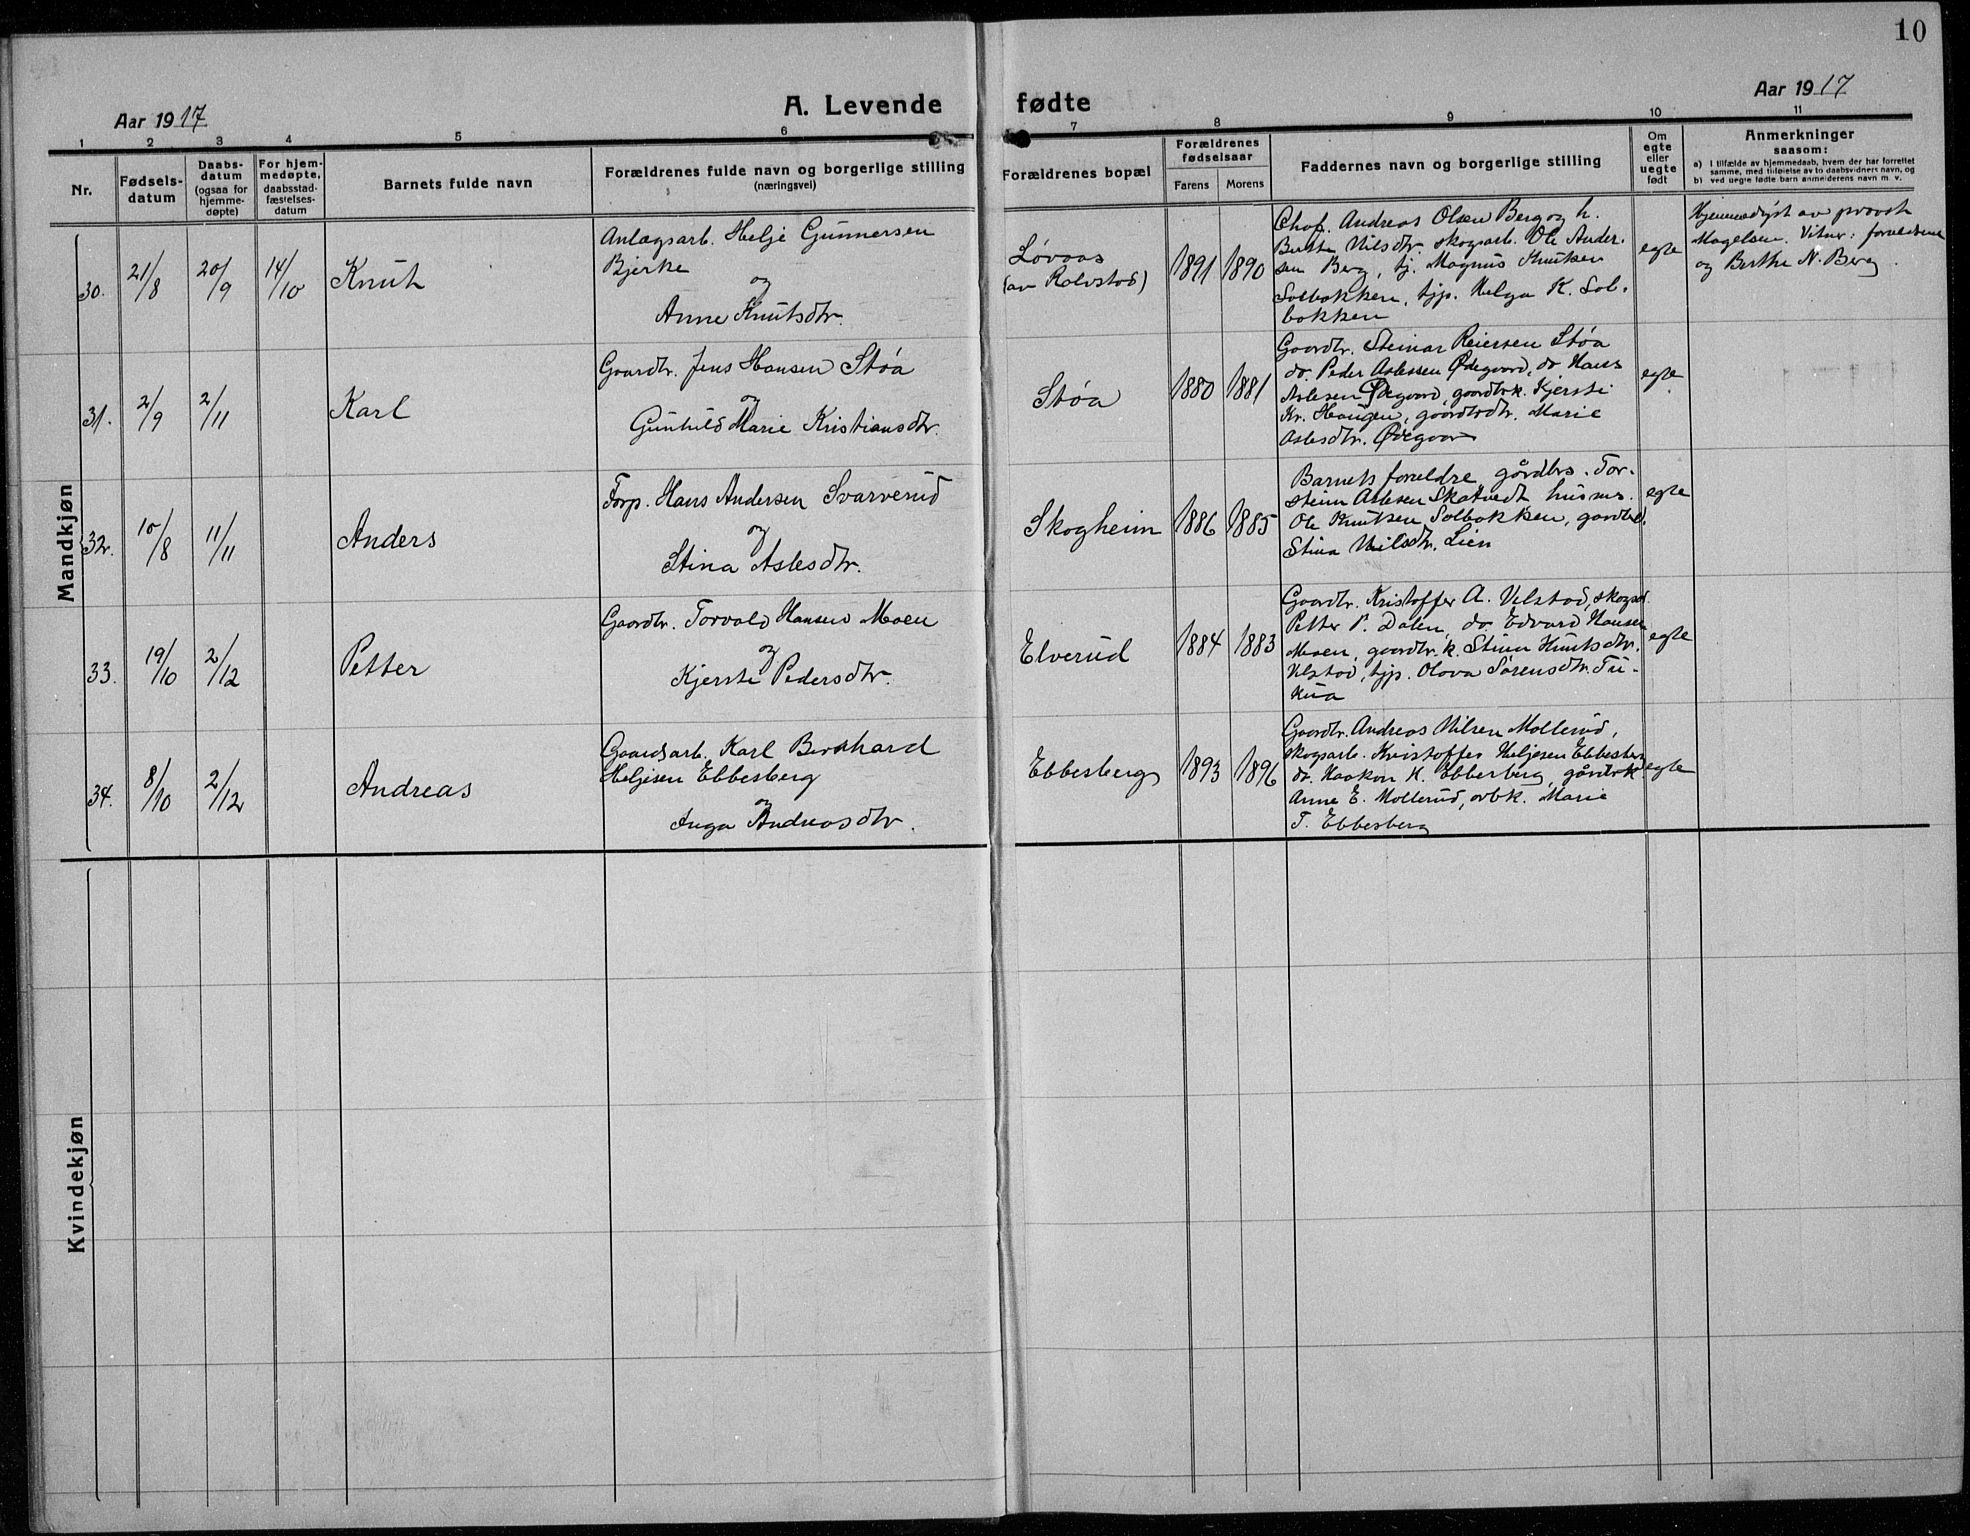 10
Aar 1917
A. Levende fødte
Aar 1917
1 2 3 4 5 6 7 8 9 10 11
Nr.
Fødsels-
datum
Daabs-
datum
(ogsaa for
hjemme-
døpte)
For hjem-
medøpte,
daabsstad-
fæstelses-
datum
Barnets fulde navn
Forældrenes fulde navn og borgerlige stilling
(næringsvei)
Forældrenes bopæl
Forældrenes
fødselsaar
Farens Morens
Faddernes navn og borgerlige stilling
Om
egte
eller
uegte
født
Anmerkninger
saasom:
a) I tilfælde av hjemmedaab, hvem der har forrettet
samme, med tilføielse av to daabsvidners navn, og
b) ved uegte fødte barn anmelderens navn m. v.
Mandkjøn
30. 21/8 20/9 14/10 Knut
Anlægsarb. Helje Gunnersen
Bjerke
og
Anne Knutsdtr.
Løvaas
(av Rolvstad)
1891 1890
Chof. Andreas Olsen Berg og h.
Berthe Nilsdtr. skogsarb. Ole Ander-
sen Berg, tj. Magnus Knutsen
Solbakken, tjp. Helga K. Sol-
bakken
egte
Hjemmedøpt av provst
Magelsen. Vitner: forældrene
og Berthe N. Berg.
31. 2/9 2/11 Karl
Gaardbr. Jens Hansen Støa
og
Gunhild Marie Kristiansdtr.
Støa
1880 1881
Gaardbr. Steinar Reiersen Støa
do. Peder Aslessen Ødegaard, do Hans
Aslesen Ødegaard, gaardbrk. Kjersti
Kr. Haugen, gaardbrdtr. Marie
Aslesdtr. Ødegaar
egte
32. 10/8 11/11 Anders
Forp. Hans Andersen Svarverud
og
Stina Aslesdtr.
Skogheim
1886 1885
Barnets forældre gårdbrs. Tor-
stein Aslesen Skatvedt husms.
Ole Knutsen Solbakken, gardbd.
Stina Nilsdtr. Lien
egte
33. 19/10 2/12 Petter
Gaardbr. Torvald Hansen Moen
og
Kjersti Pedersdtr.
Elverud
1884 1883
Gaardbr. Kristoffer A. Velstad, skogsa.
Petter P. Dalen, do. Edvard Hansen
Moen, gaardbr. k. Stina Knutsdtr.
Velstad, tjp. Olava Sørensdtr. Tu-
kua
egte
34. 8/10 2/12 Andreas
Gaardsarb. Karl Bernhard
Heljesen Ebbesberg
og
Inga Andreasdtr.
Ebbesberg
1893 1896
Gaardbr. Andreas Nilsen Mollerud,
skogsarb. Kristoffer Heljesen Ebbesberg
do. Haakon H. Ebbesberg, gårdbrk
Anne E. Mollerud, arbk. Marie
T. Ebbesberg
egte
Kvindekjøn